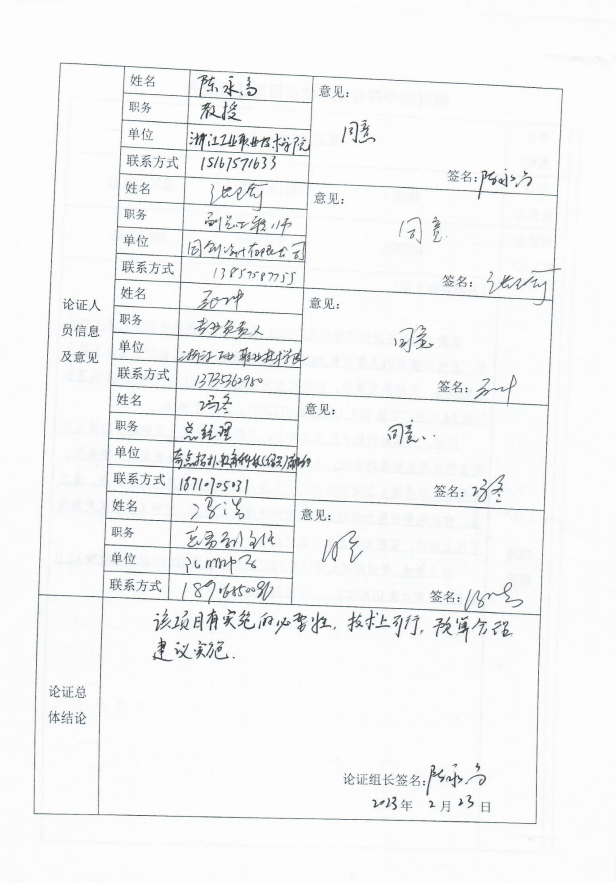 姓名 陈永高 意见：
职务 教授
同意
单位 浙江工业职业技术学院
联系方式 15167571633 签名：陈永高
姓名 意见：
职务 副总工程师
同意
单位
联系方式 13857587755 签名：
姓名 意见：
职务 专业负责人
同意
单位 浙江工业职业技术学院
联系方式 13735362980 签名：
姓名 冯冬 意见：
职务 总经理
同意
单位
联系方式 18710705031 签名：冯冬
姓名 意见：
职务
同意
单位
联系方式 签名：
论证人
员信息
及意见
该项目有实施的必要性，技术上可行，预算合理
建议实施.
论证总
体结论
论证组长签名：陈永高
2023年 2月 23日